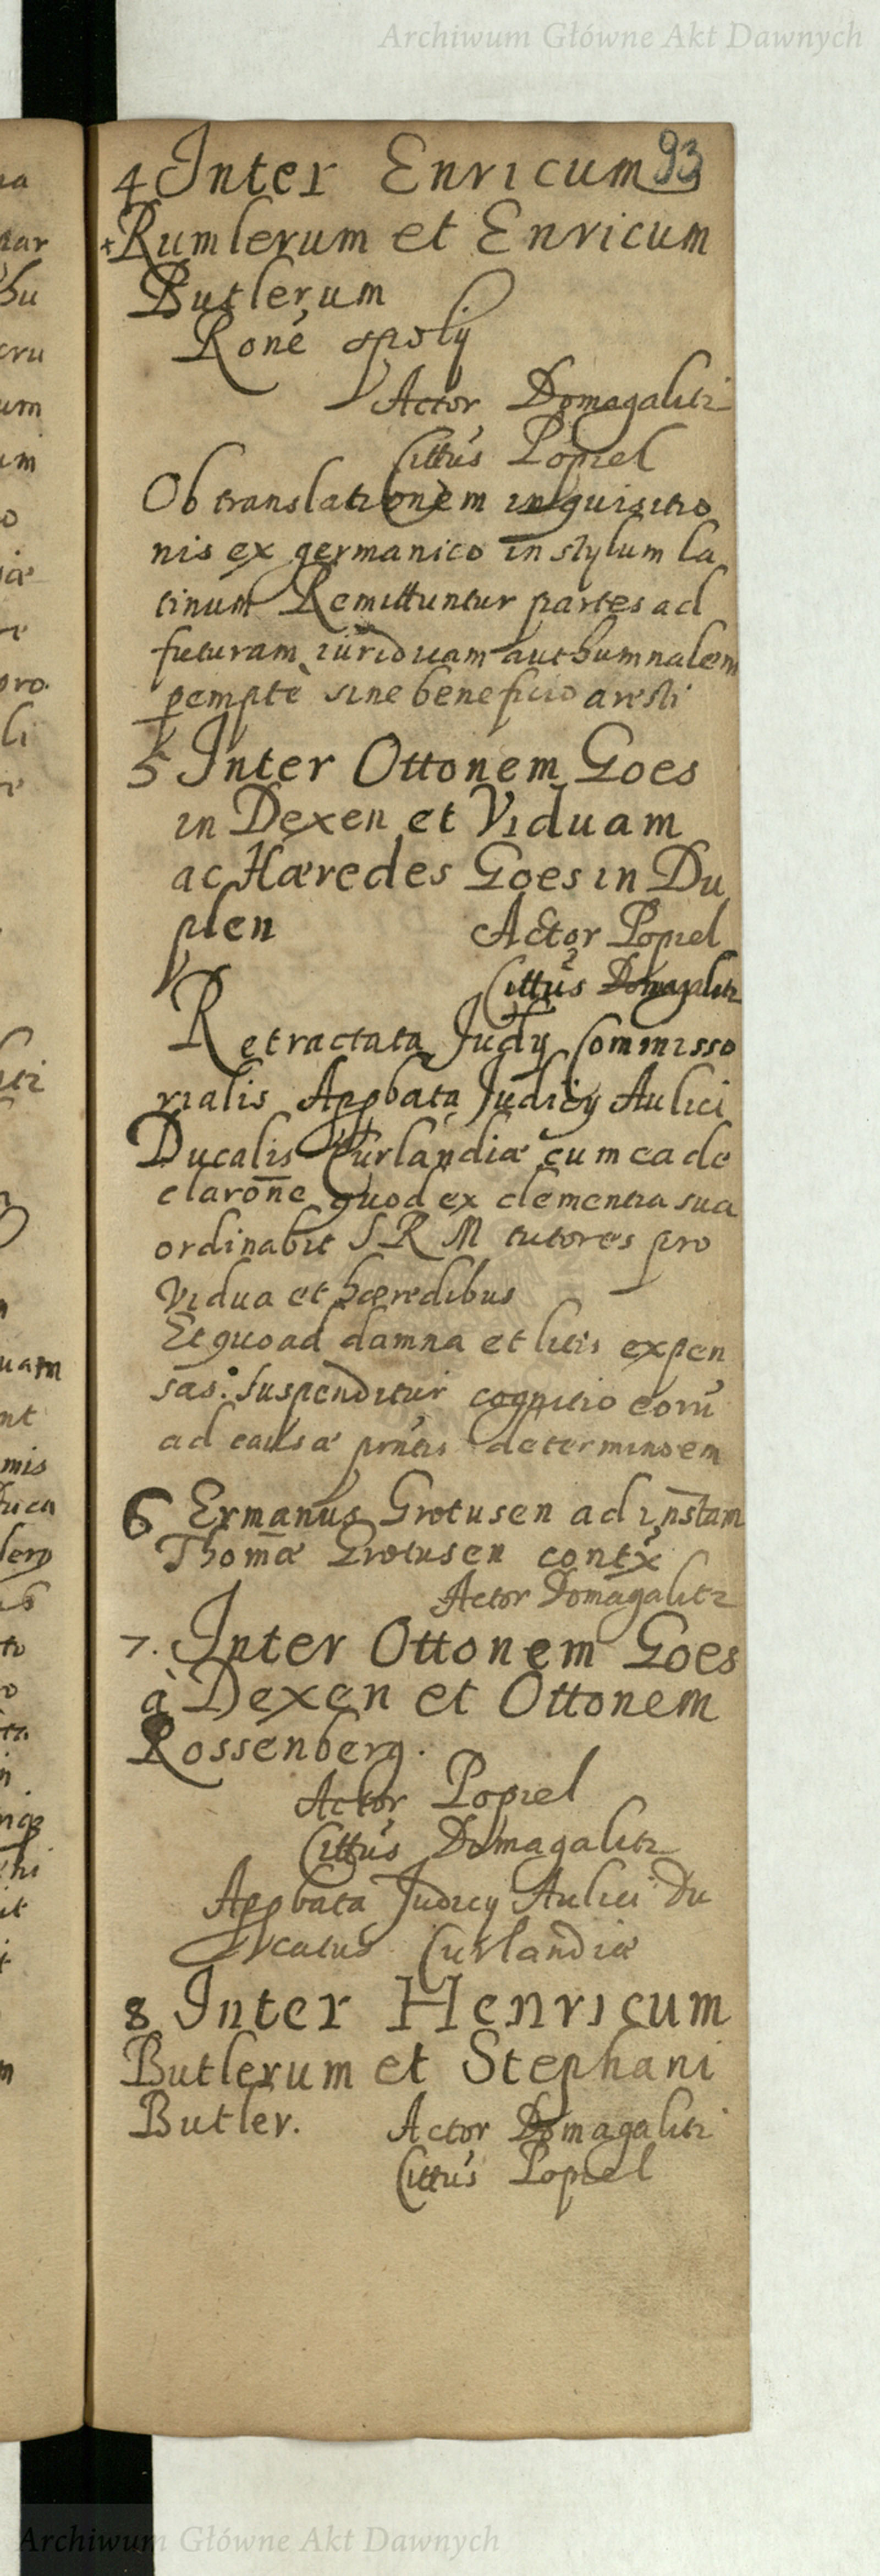 Archiwum Główne Akt Dawnych
93
4 Inter Enricum
+ Rumlerum et Enricum
Butlerum
Roné spolÿ
Actor Domagalitz
Cittús Popiel
Ob translationem inquisitio
nis ex germanico in stylum la
tinum Remittuntur partes ad
futuram iuriduam authumnalem
pempte sine beneficio aresti
5 Inter Ottonem Goes
in Dexen et Viduam
ac Hæredes Goes in Du
plen Actor Popiel
Cittús Domagalitz
Retractata Judÿ Commisso
rialis Appbata Judicÿ Aulici
Ducalis Curlandiæ cum ea de
clarone quod ex clementia sua
ordinabit S R M tutores pro
Vidua et hæredibus
Et quoad damna et litis expen
sas: Suspenditur cognitio eorú
ad causæ pñtis determinoem
6 Ermanus Grotusen ad instam
Thomæ Grotusen contx
Actor Domagalitz
7. Inter Ottonem Goes
à Dexen et Ottonem
Rossenberg.
Actor Popiel
Cittús Domagalitz
Appbata Judicÿ Aulici Du
catus Curlandiæ
8 Inter Henricum
Butlerum et Stephani
Butler. Actor Domagalitz
Cittús Popiel
Archiwum Główne Akt Dawnych